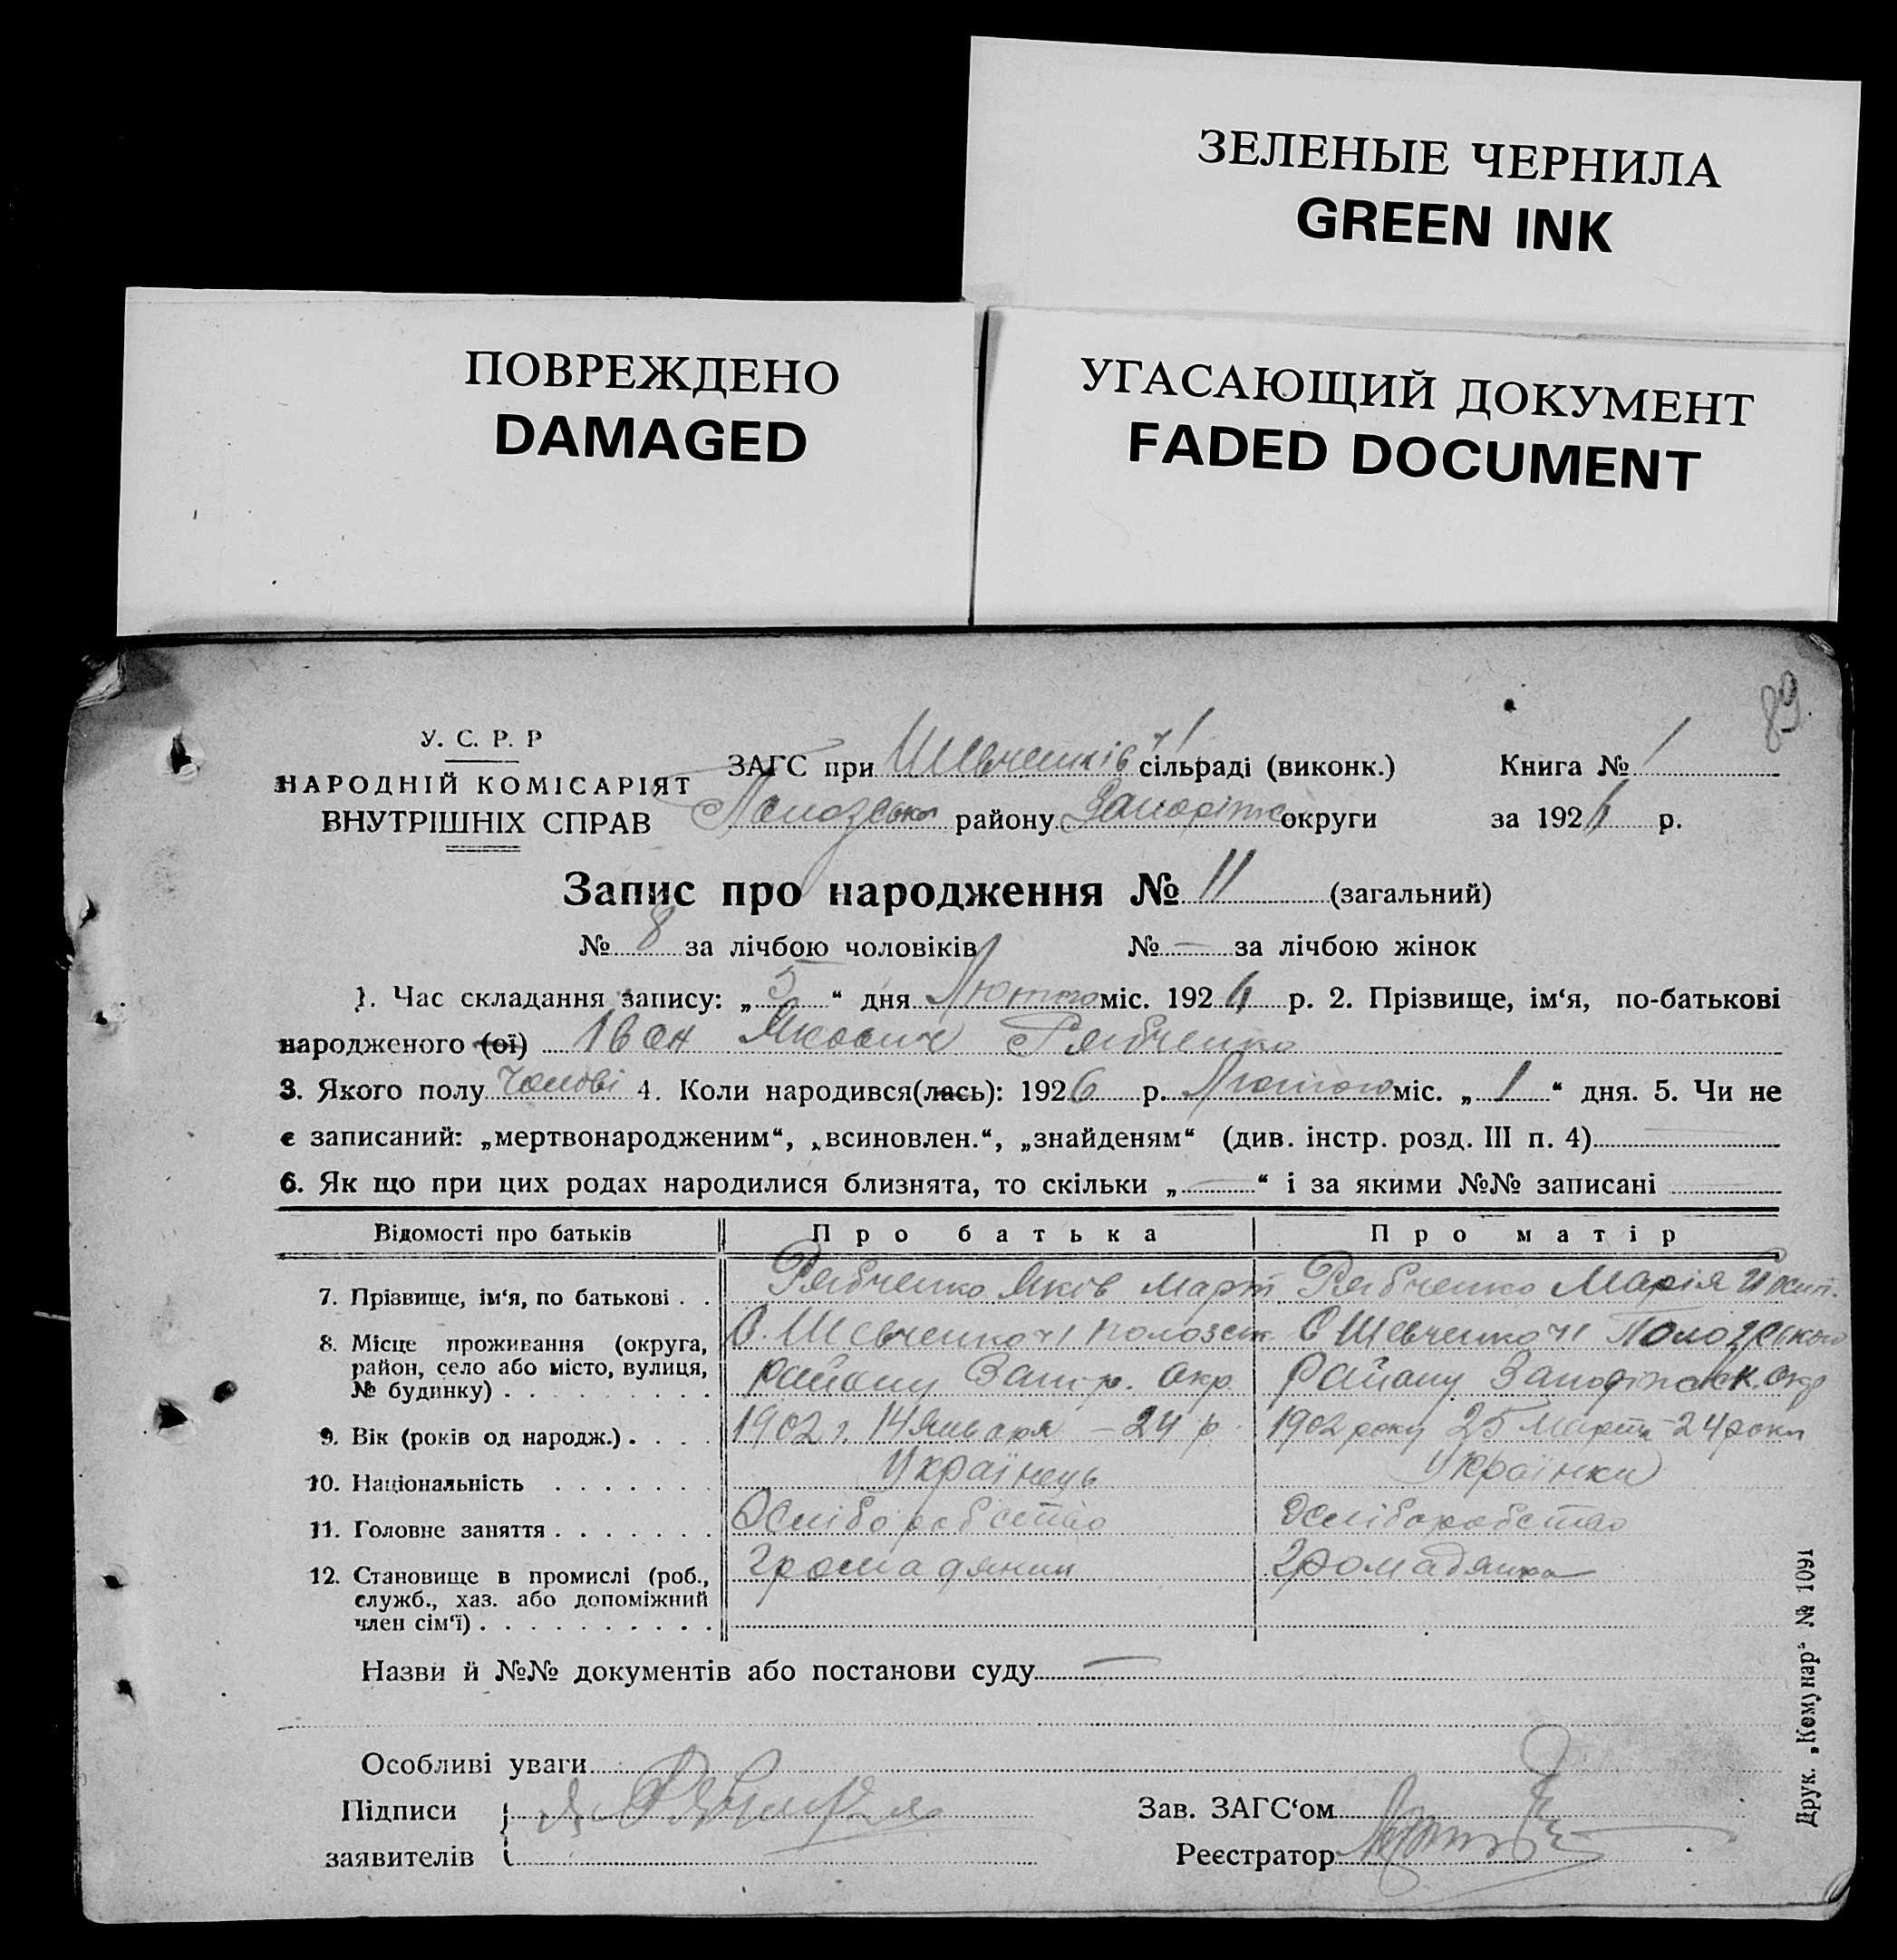 ЗЕЛЕНЫЕ ЧЕРНИЛА
GREEN INK
ПОВРЕЖДЕНО
DAMAGED
УГАСАЮЩИЙ ДОКУМЕНТ
FADED DOCUMENT
89
У. С. Р. Р
НАРОДНІЙ КОМІСАРІЯТ
ВНУТРІШНІХ СПРАВ
ЗАГС при Шевченків ч1 сільраді (виконк.) Книга № 1
району Запоріжс округи за 1926 р.
Запис про народження № 11 (загальний)
№ 8 за лічбою чоловіків № — за лічбою жінок
1. Час складання запису: „ 5 “ дня Лютого міс. 1926 р. 2. Прізвище, ім‘я, по-батькові
народженого (ої) Іван Якович Рябченко
3. Якого полу Чолові 4. Коли народився(лась): 1926 р. Лютого міс. „ 1 “ дня. 5. Чи не
є записаний: „мертвонародженим“, „всиновлен.“, „знайденям“ (див. інстр. розд. III п. 4)
6. Як що при цих родах народилися близнята, то скільки „ — “ і за якими №№ записані
Відомості про батьків Про батька Про матір
7. Прізвище, ім‘я, по батькові . . Рябченко Яків Март Рябченко Марія Йосип.
8. Місце проживання (округа, С. Шевченко ч1 Полозськ. С Шевченко ч1 Пологського
район, село або місто, вулиця,
№ будинку) . . . . . . . . . району Запор. Окр. району Запоріжськ. Окр
9. Вік (років од народж.) . . . . 1902 г. 14 Января – 24 р. 1902 року 25 Марта – 24 роки
10. Національність . . . . . . . Українець Українка
11. Головне заняття . . . . . . . Хліборобство Хліборобство
12. Становище в промислі (роб., Громадянин Громадянка
служб., хаз. або допоміжний
член сім‘ї) . . . . . . . . . .
Назви й №№ документів або постанови суду —
Особливі уваги
Підписи
заявителів
Зав. ЗАГС‘ом
Реєстратор
Друк. „Комунар“ № 1091